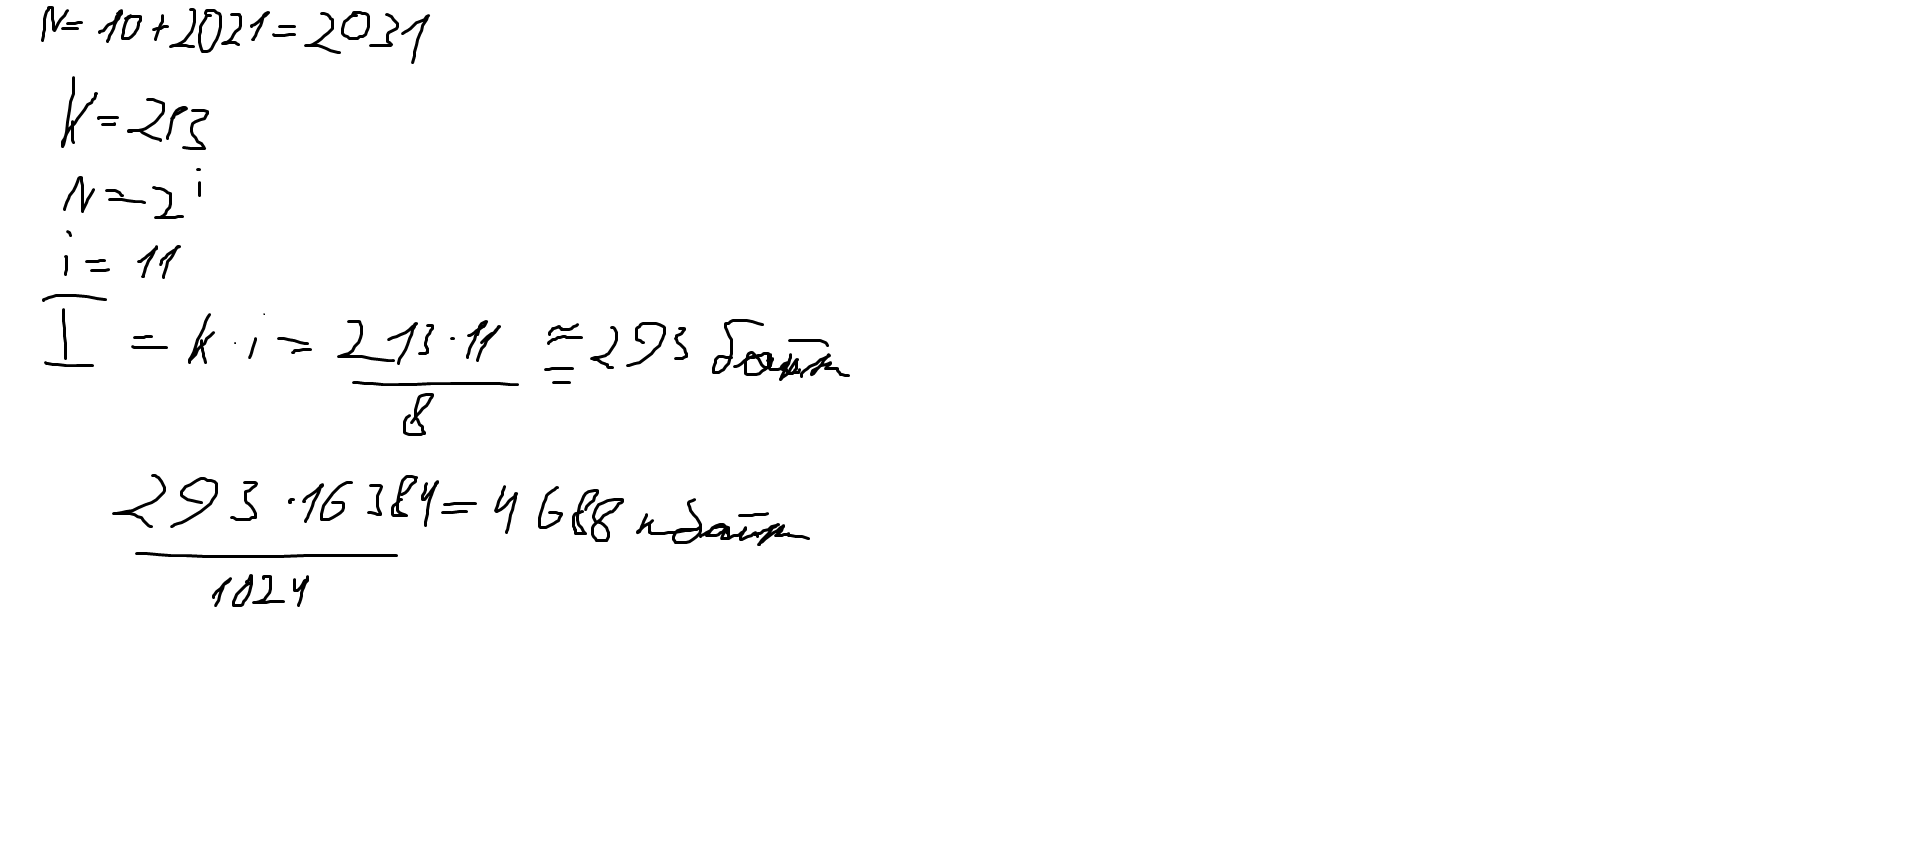 N = 10 + 2021 = 2031
K = 213
N = 2^i
i = 11
I = k · i = 213 · 11 / 8 ≈ = 293 байт
293 · 16384 / 1024 = 4688 кбайт